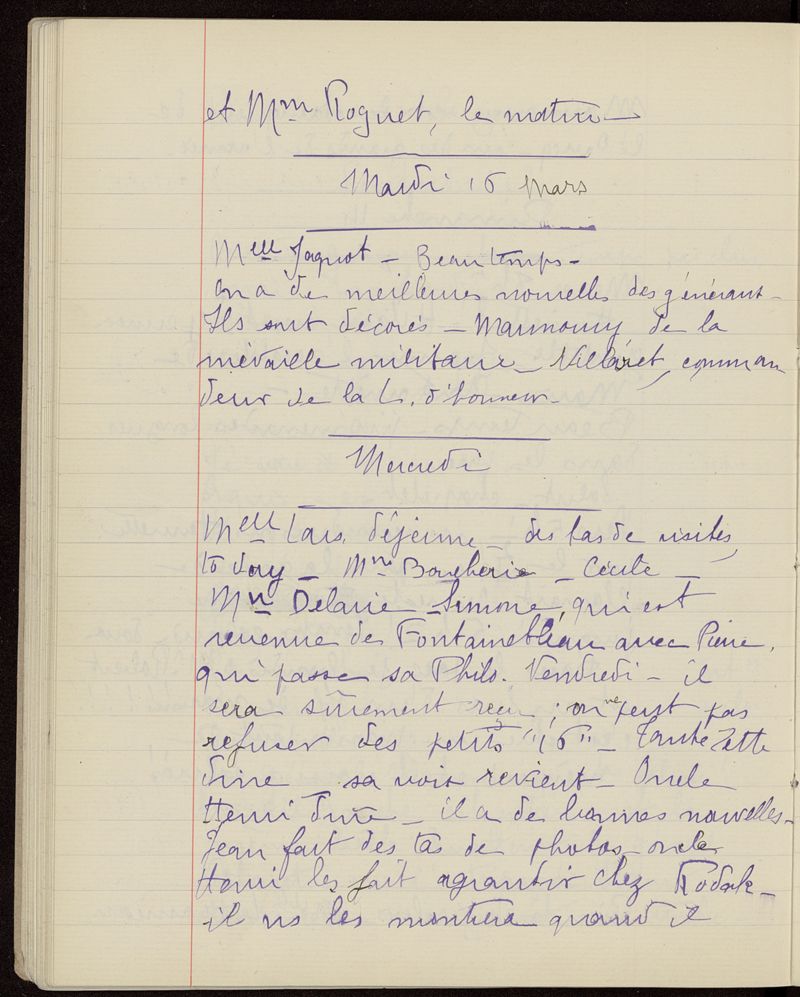 et Mm Roguet, le matin
Mardi 16 Mars
Melle Jaquot - Beau temps -
on a de meilleures nouvelles des généraux -
Ils sont décorés - Maunoury de la
médaille militaire - Villaret, comman
deur de la L. d'honneur -
Mercredi
Melle Lars déjeune - des tas de visites,
to day - Mme Boucherie - Cécile -
Mme Delarie - Simone, qui est
revenue de Fontainebleau avec Pierre,
qui passe sa Phils. Vendredi - il
sera sûrement reçu ; on ne peut pas
refuser des petits "16" - Tante
dîne - sa voix revient - Oncle
Henri dîne - il a de bonnes nouvelles -
Jean fait des tas de photos - oncle
Henri les fait agrandir chez Kodak -
il ns les montrera quand il